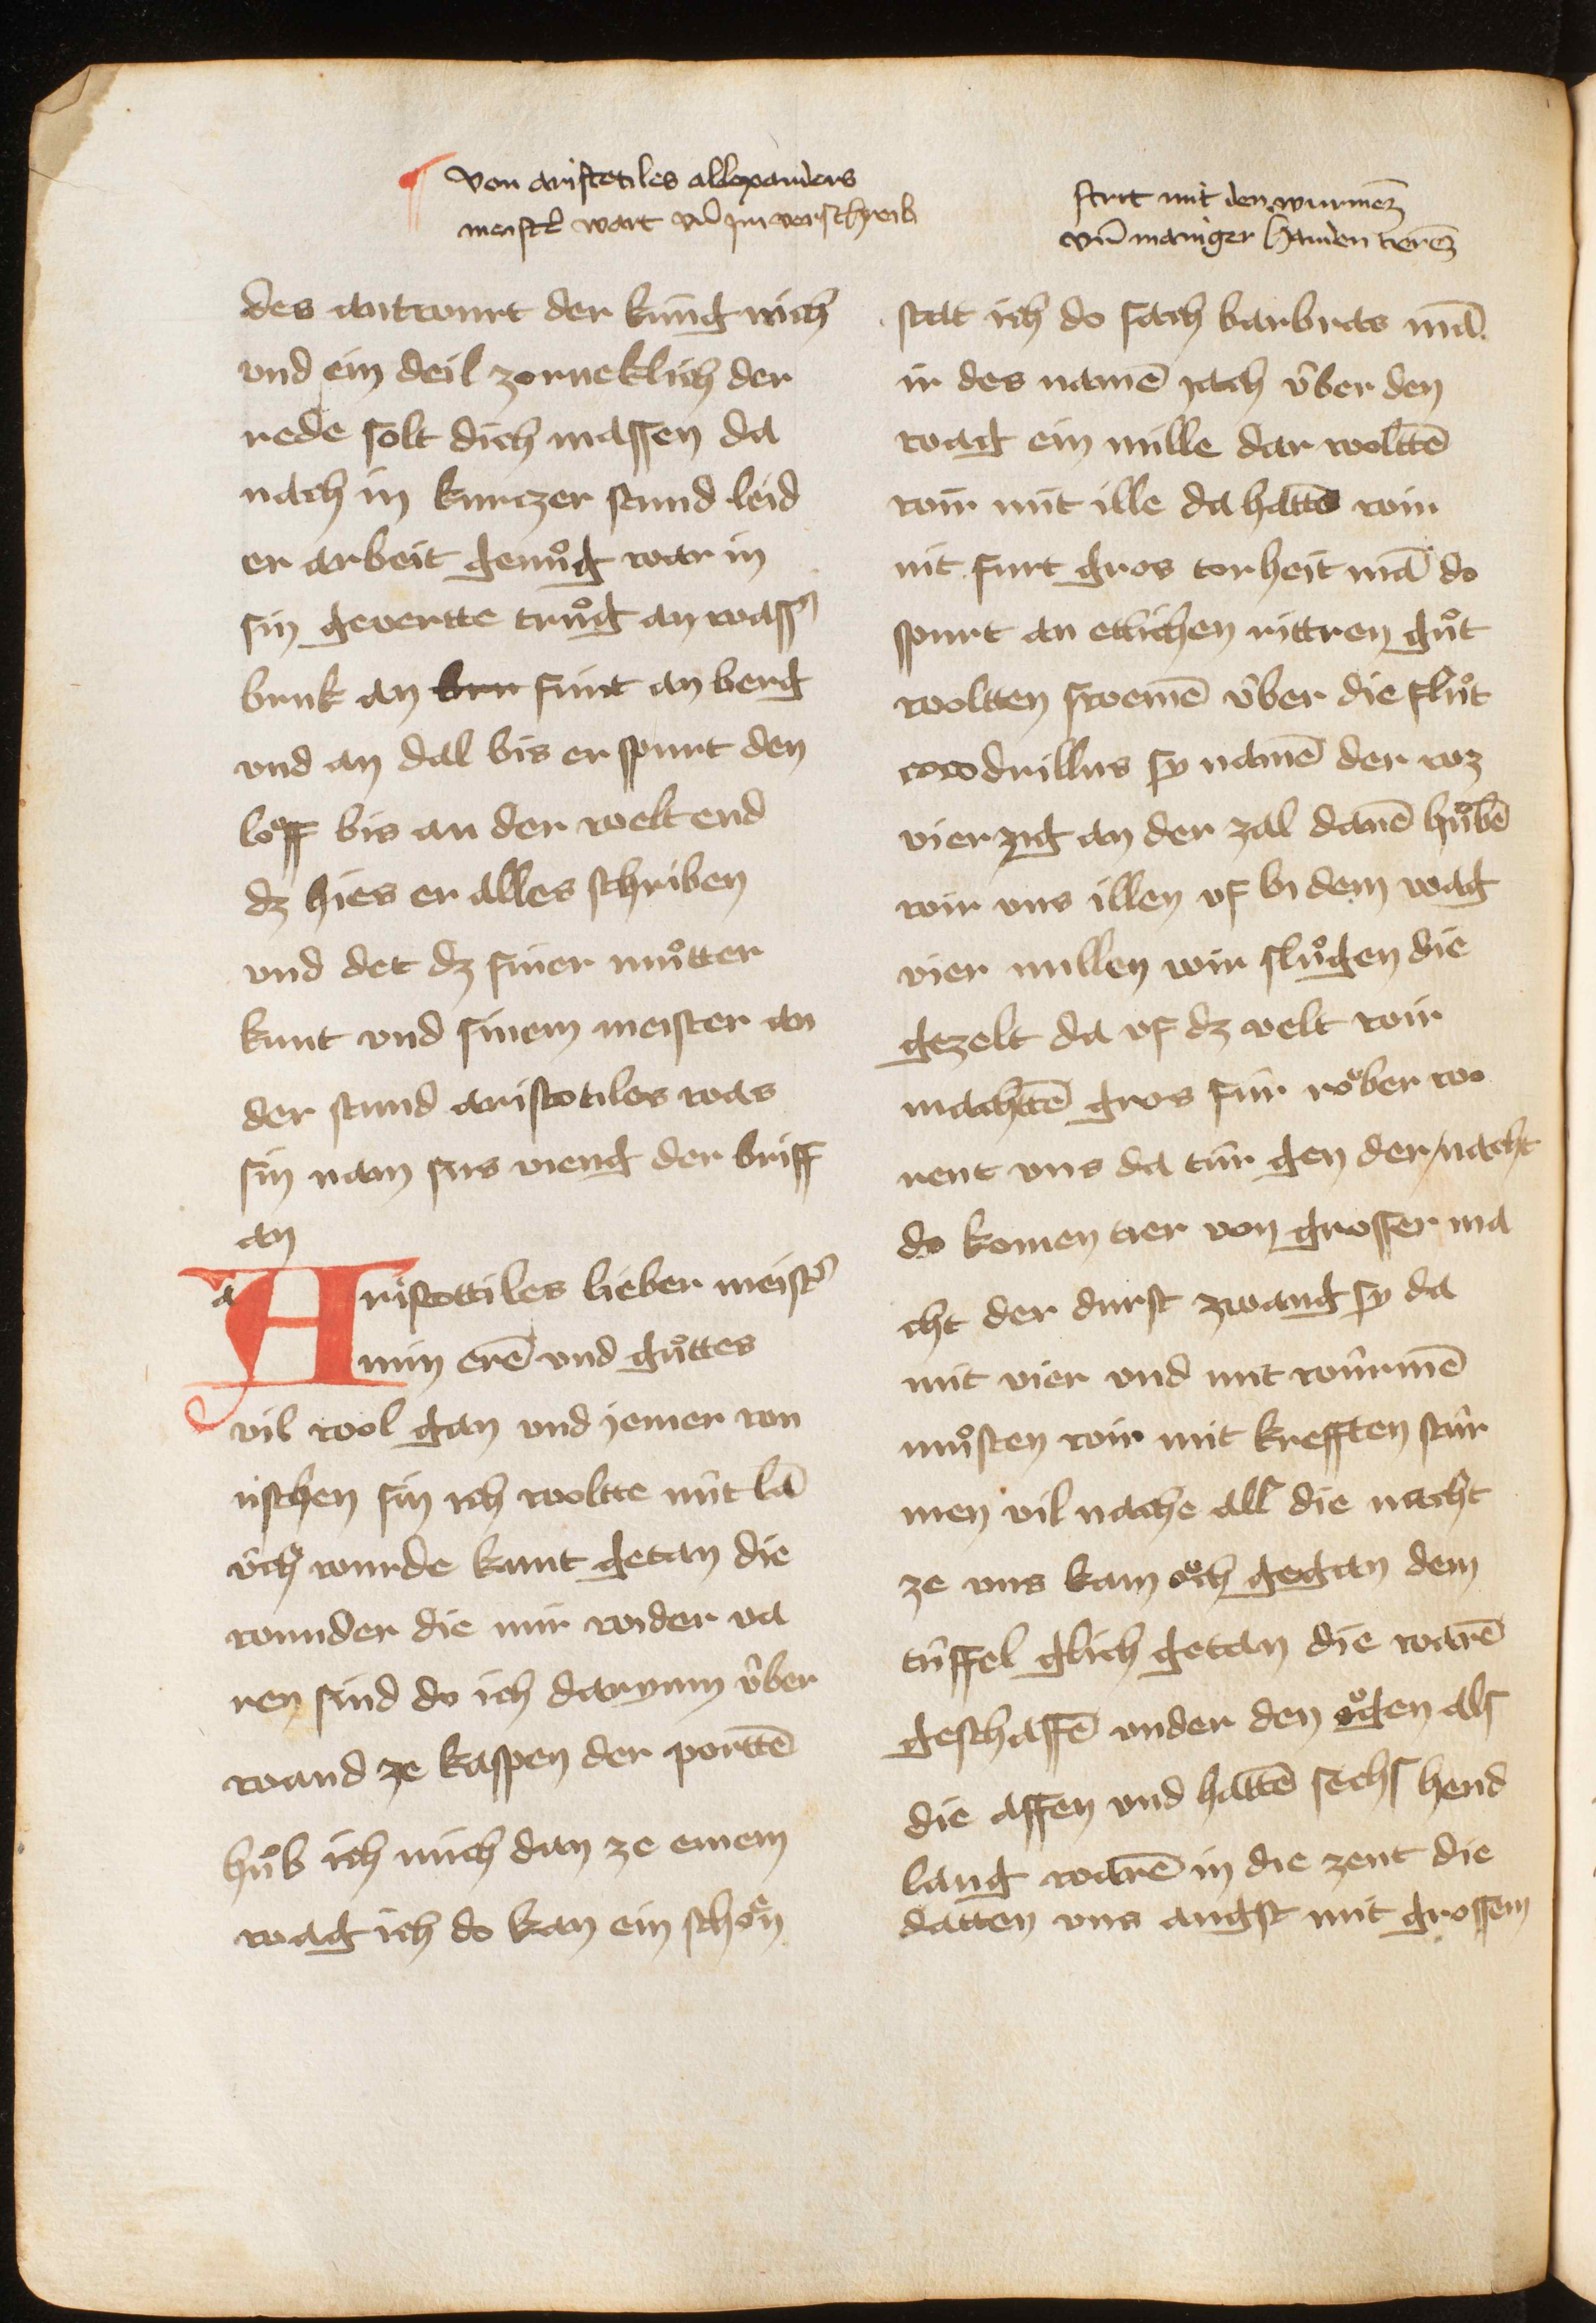 von aristetiles allexanders
meist͛ wart vn̄ jm verschreib
des antwurt der kung rich
vnd ein deil zorneklich der
rede solt dich massen da
nach in kurczer stund leid
er arbeit genuͦg war in
sin geuertte truͦg an wass͛
bruk an furt an berg
vnd an dal bis er spurt den
loͮff bis an der welt end
dz hies er alles schriben
vnd det dz siner muͦtter
kunt vnd sinem meister an
der stund aristotiles was
sin nam sus vieng der briff
an
Aristottiles lieber meist͛
min erē vnd guͦttes
vil wol gan vnd jemer wn
nschen sin ich woltte nut lā
uͥch wurde kunt getan die
wunder die mir wider va
ren sind do ich darynm uͥber
wand ze kaspen der porttē
huͦb ich mich dan ze einem
wag ich do kan ein schoͤn
strit mit den wurmez
vn̄ maniger handen tierez
stat ich do sach barbras mā
ir des namē jach uͥber den
wag ein mille dar wolttē
wir mit ille da hattē wir
nit furt gros torheit mā do
spurt an etlichen rittren guͦt
woltten swemē uͥber die fluͦt
cocodrillus sy namē der wz
vierzig an der zal danē huͦbē
wir vns illen vf bi dem wag
vier millen wir sluͦgen die
gezelt da vf dz velt wir
machttē gros fur roͤber wo
rent vns da tur gen der nacht
do komen tier von grosser ma
cht der durst zwang sy da
mit vier vnd mit wurmē
muͦsten wir mit krefften stur
men vil nache all die nacht
ze vns kam oͮch gegan dem
tuffel glich getan die warē
geschaffē vnder den oͮgen als
die affen vnd hattē sechs hend
lang warē in die zent die
datten vns angst mit grossem